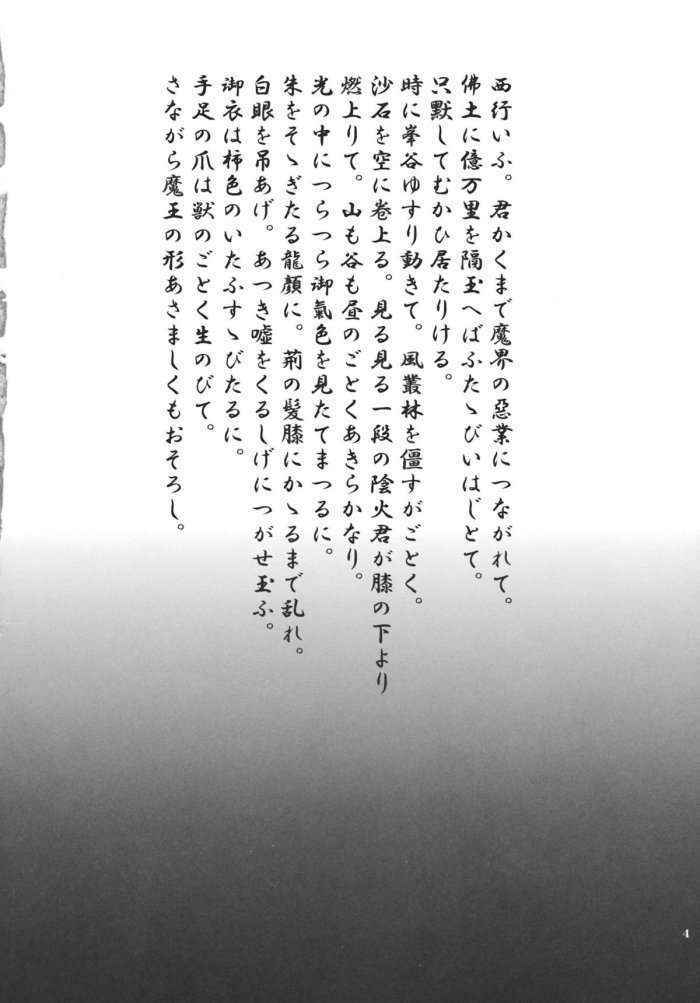 西行いふ。君かくまで魔界の惡業につながれて。
佛土に億万里を隔玉へばふたゝびいはじとて。
只默してむかひ居たりける。
時に峯谷ゆすり動きて。風叢林を僵すがごとく。
沙石を空に卷上る。見る見る一段の陰火君が膝の下より
燃上りて。山も谷も昼のごとくあきらかなり。
光の中につらつら御氣色を見たてまつるに。
朱をそゝぎたる龍顏に。荊の髮膝にかゝるまで乱れ。
白眼を吊あげ。あつき嘘をくるしげにつがせ玉ふ。
御衣は柿色のいたふすゝびたるに。
手足の爪は獣のごとく生のびて。
さながら魔王の形あさましくもおそろし。
4